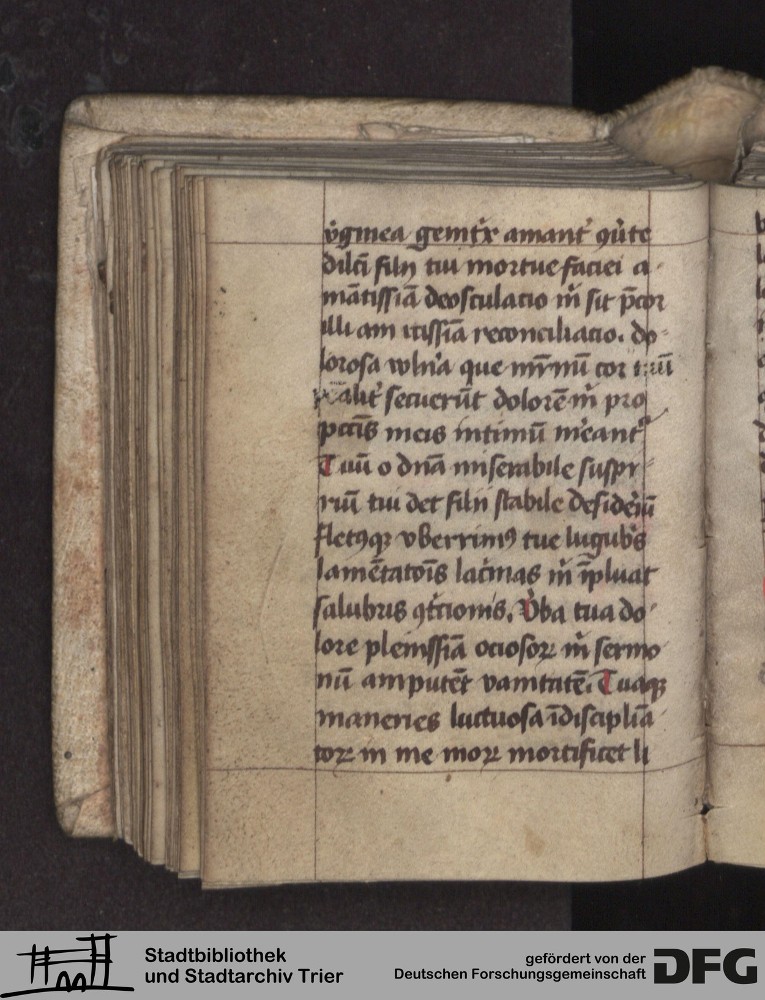 v̓ginea genitͥx amant᷒ qͥ̄ te
dilc̄i filij tui mortue faciei a-
mātissīa deosculatio m̄ sit p̄cor
illi am icissīa reconciliatio. do-
lorosa wln̓a que mr̄nū cor tuū
secuerūt dolorē m̄ pro
pctīs meis intimū
Tuū o dn̄a miserabile suspi-
riū tui det filij stabile desideriū
fletꝰqꝫ vberrimꝰ tue lugubͥs
lamētatoīs lacͥmas m̄ īpluat
salubris ꝯtͥcionis. V̓ba tua do-
lore plenissīa ociosoꝝ m̄ sermo-
nū amputēt vanitatē. Tuaqꝫ
maneries luctuosa īdisciplīa-
toꝝ in me moꝝ mortificet li
Stadtbibliothek
und Stadtarchiv Trier
gefördert von der
Deutschen Forschungsgemeinschaft
DFG